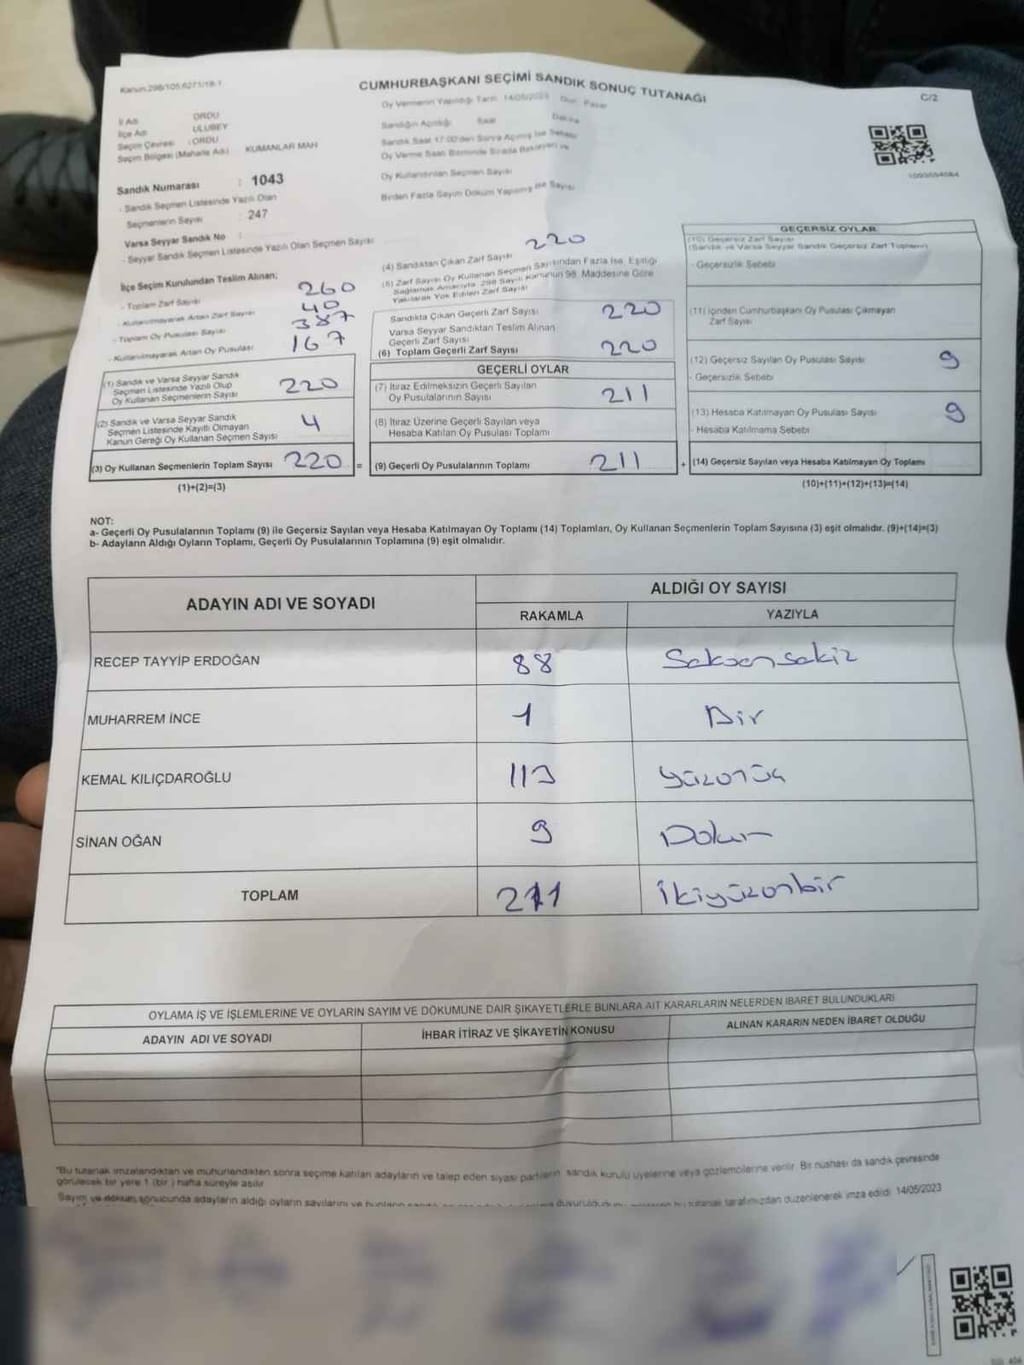 Kanun:298/105,6271/18-1
CUMHURBAŞKANI SEÇİMİ SANDIK SONUÇ TUTANAĞI
C/2
İl Adı : ORDU
İlçe Adı : ULUBEY
Seçim Çevresi : ORDU
Seçim Bölgesi (Mahalle Adı) : KUMANLAR MAH
Oy Vermenin Yapıldığı Tarih 14/05/2023 Gün Pazar
Sandığın Açıldığı Saat Dakika
Sandık Saat 17:00'den Sonra Açılmış İse Sebebi
Oy Verme Saati Bitiminde Sırada Bekleyen ve
Oy Kullandırılan Seçmen Sayısı
Birden Fazla Sayım Döküm Yapılmış İse Sayısı
Sandık Numarası : 1043
- Sandık Seçmen Listesinde Yazılı Olan
Seçmenlerin Sayısı : 247
Varsa Seyyar Sandık No :
- Seyyar Sandık Seçmen Listesinde Yazılı Olan Seçmen Sayısı
İlçe Seçim Kurulundan Teslim Alınan;
- Toplam Zarf Sayısı 260
- Kullanılmayarak Artan Zarf Sayısı 40
- Toplam Oy Pusulası Sayısı 387
- Kullanılmayarak Artan Oy Pusulası 167
(1) Sandık ve Varsa Seyyar Sandık
Seçmen Listesinde Yazılı Olup
Oy Kullanan Seçmenlerin Sayısı 220
(2) Sandık ve Varsa Seyyar Sandık
Seçmen Listesinde Kayıtlı Olmayan
Kanun Gereği Oy Kullanan Seçmen Sayısı 4
(3) Oy Kullanan Seçmenlerin Toplam Sayısı 220 =
(1)+(2)=(3)
(4) Sandıktan Çıkan Zarf Sayısı 220
(5) Zarf Sayısı Oy Kullanan Seçmen Sayısından Fazla İse, Eşitliği
Sağlamak Amacıyla 298 Sayılı Kanunun 98. Maddesine Göre
Yakılarak Yok Edilen Zarf Sayısı
Sandıkta Çıkan Geçerli Zarf Sayısı 220
Varsa Seyyar Sandıktan Teslim Alınan
Geçerli Zarf Sayısı
(6) Toplam Geçerli Zarf Sayısı 220
GEÇERLİ OYLAR
(7) İtiraz Edilmeksizin Geçerli Sayılan
Oy Pusulalarının Sayısı 211
(8) İtiraz Üzerine Geçerli Sayılan veya
Hesaba Katılan Oy Pusulası Toplamı
(9) Geçerli Oy Pusulalarının Toplamı 211 +
GEÇERSİZ OYLAR
(10) Geçersiz Zarf Sayısı
(Sandık ve Varsa Seyyar Sandık Geçersiz Zarf Toplamı)
- Geçersizlik Sebebi
(11) İçinden Cumhurbaşkanı Oy Pusulası Çıkmayan
Zarf Sayısı
(12) Geçersiz Sayılan Oy Pusulası Sayısı 9
- Geçersizlik Sebebi
(13) Hesaba Katılmayan Oy Pusulası Sayısı 9
- Hesaba Katılmama Sebebi
(14) Geçersiz Sayılan veya Hesaba Katılmayan Oy Toplamı
(10)+(11)+(12)+(13)=(14)
NOT:
a- Geçerli Oy Pusulalarının Toplamı (9) ile Geçersiz Sayılan veya Hesaba Katılmayan Oy Toplamı (14) Toplamları, Oy Kullanan Seçmenlerin Toplam Sayısına (3) eşit olmalıdır. (9)+(14)=(3)
b- Adayların Aldığı Oyların Toplamı, Geçerli Oy Pusulalarının Toplamına (9) eşit olmalıdır.
ADAYIN ADI VE SOYADI
ALDIĞI OY SAYISI
RAKAMLA YAZIYLA
RECEP TAYYİP ERDOĞAN 88 Seksensekiz
MUHARREM İNCE 1 Bir
KEMAL KILIÇDAROĞLU 113 yüzonüç
SİNAN OĞAN 9 Dokuz
TOPLAM 211 İkiyüzonbir
OYLAMA İŞ VE İŞLEMLERİNE VE OYLARIN SAYIM VE DÖKÜMÜNE DAİR ŞİKAYETLERLE BUNLARA AİT KARARLARIN NELERDEN İBARET BULUNDUKLARI
ADAYIN ADI VE SOYADI İHBAR İTİRAZ VE ŞİKAYETİN KONUSU ALINAN KARARIN NEDEN İBARET OLDUĞU
*Bu tutanak imzalandıktan ve mühürlendikten sonra seçime katılan adayların ve talep eden siyasi partilerin sandık kurulu üyelerine veya gözlemcilerine verilir. Bir nüshası da sandık çevresinde
görülecek bir yere 1 (bir) hafta süreyle asılır.
Sayım ve döküm sonucunda adayların aldığı oyların sayılarını ve bunların tarafımızdan düzenlenerek imza edildi. 14/05/2023